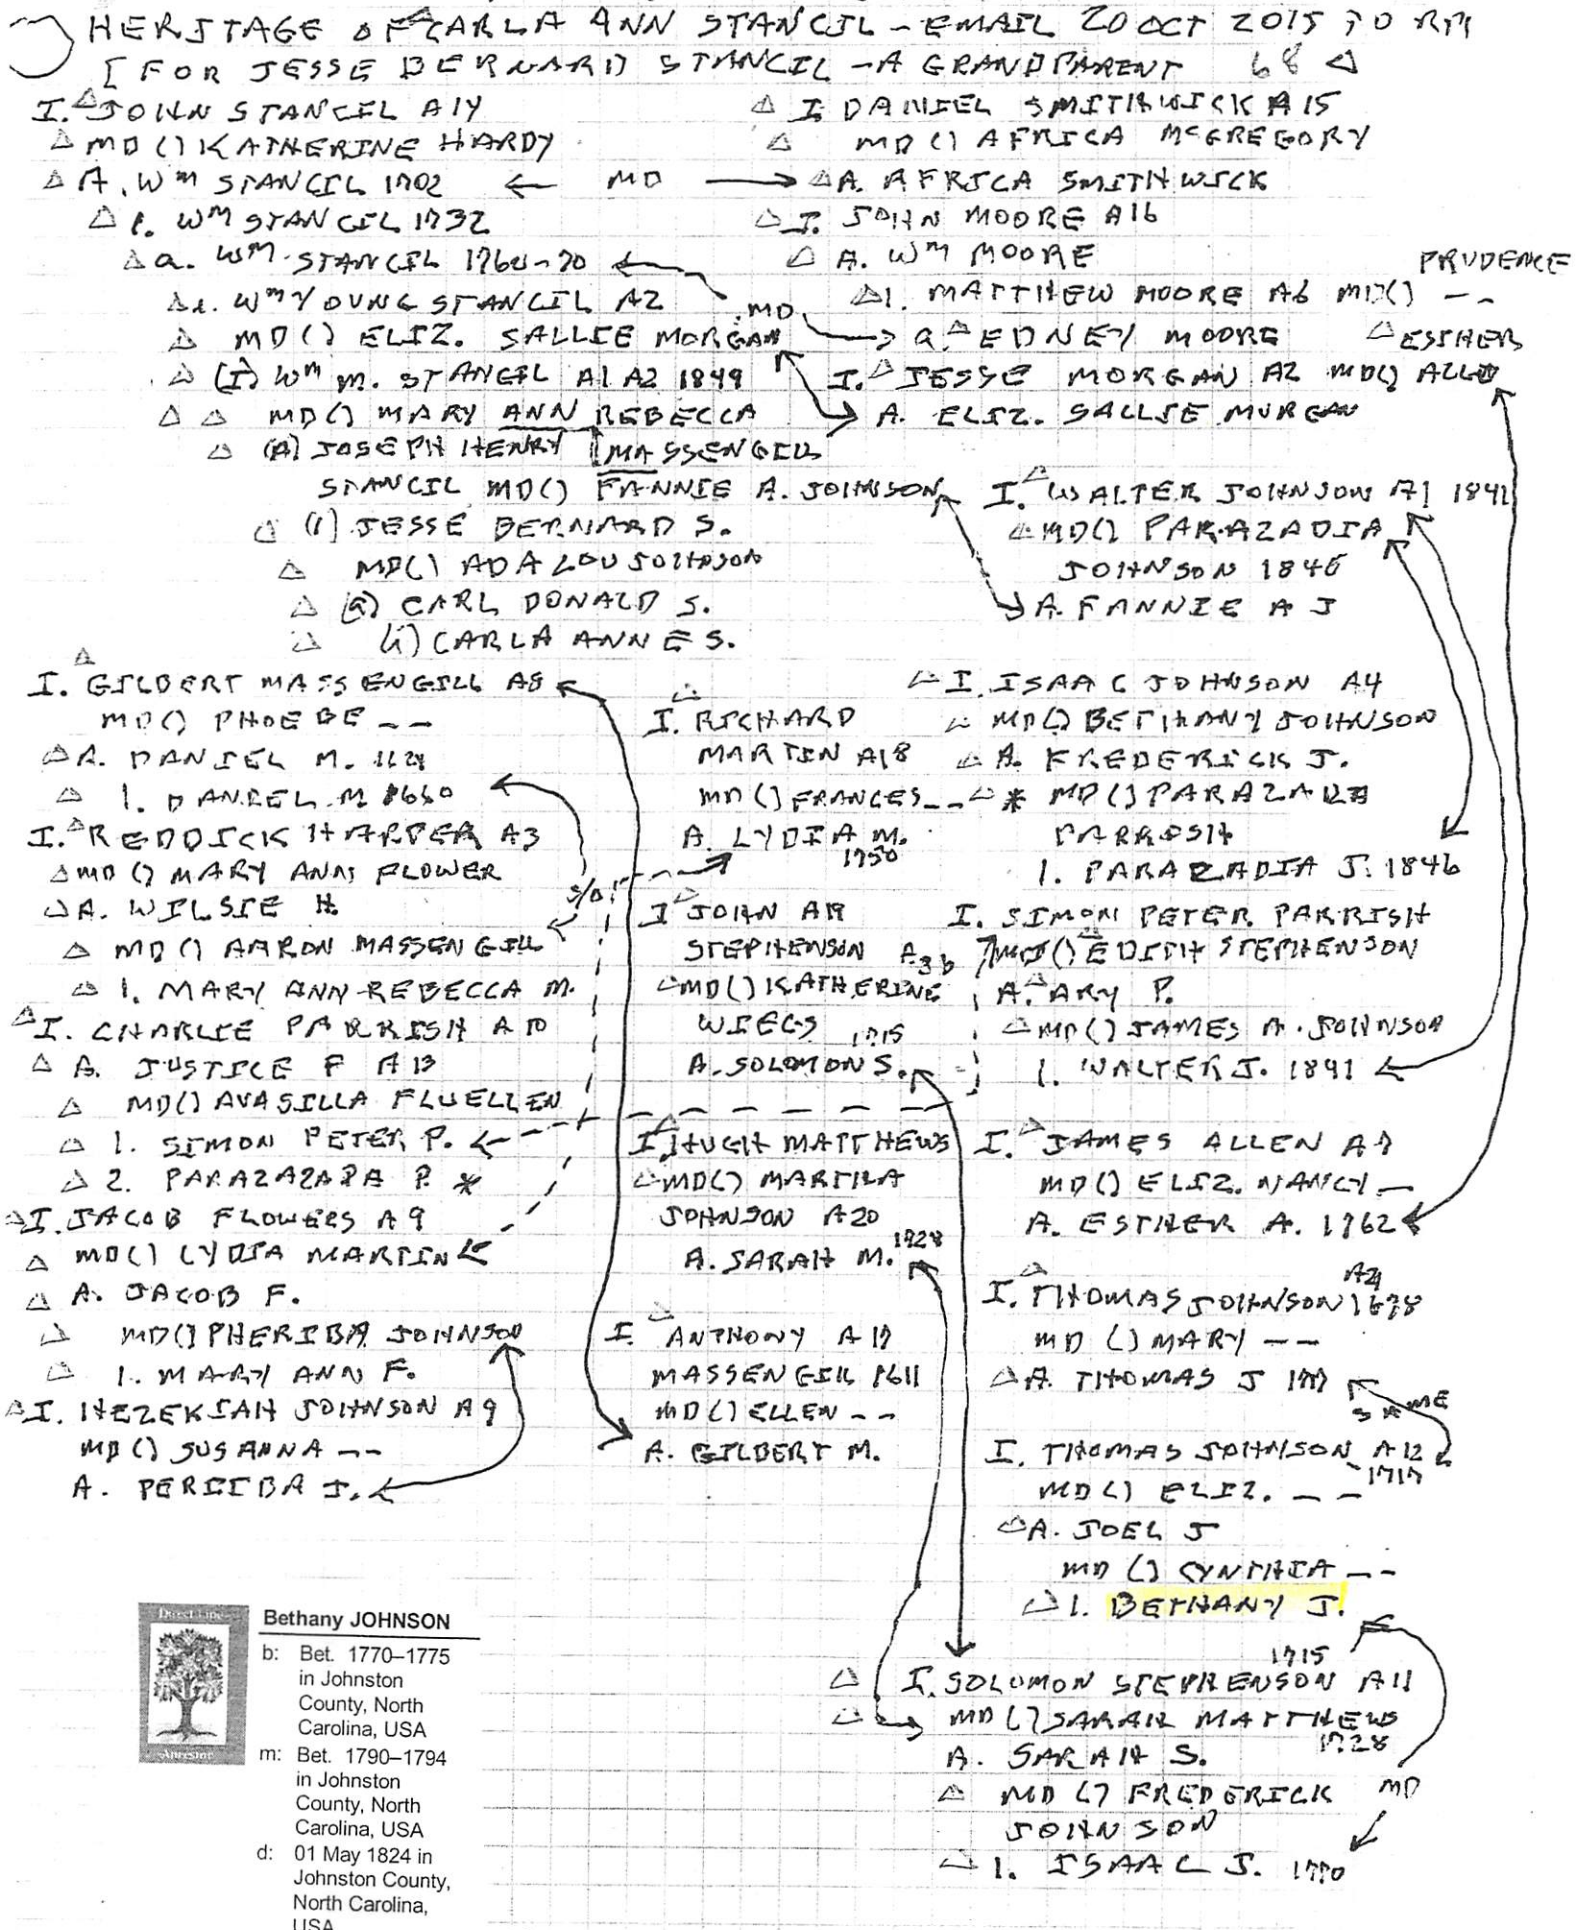 HERITAGE OF CARLA ANN STANCIL - EMAIL 20 OCT 2015 TO RM
[FOR JESSE BERNARD STANCIL - A GRANDPARENT 68
I. JOHN STANCIL A14
MD () KATHERINE HARDY
A. Wm STANCIL 1702 ← MD →
1. Wm STANCIL 1732
a. Wm STANCIL 1760-70
i. Wm YOUNG STANCIL A2
MD () ELIZ. SALLIE MORGAN
(I) Wm M. STANCIL A1 A2 1849
MD () MARY ANN REBECCA
(A) JOSEPH HENRY MASSENGILL
STANCIL MD () FANNIE A. JOHNSON
(1) JESSE BERNARD S.
MD () ADA LOU JOHNSON
(a) CARL DONALD S.
(i) CARLA ANNE S.
I. DANIEL SMITHWICK A15
MD () AFRICA McGREGORY
A. AFRICA SMITHWICK
I. JOHN MOORE A16
A. Wm MOORE
PRUDENCE
1. MATTHEW MOORE A6 MD () --
MD
a. EDNEY MOORE
ESTHER
I. JESSE MORGAN A2 MD () ALLEN
A. ELIZ. SALLIE MORGAN
I. WALTER JOHNSON A1 1841
MD () PARAZADIA
JOHNSON 1846
A. FANNIE A J
I. GILBERT MASSENGILL A8
MD () PHOEBE --
A. DANIEL M.
1. DANIEL M
I. REDDICK HARPER A3
MD () MARY ANN FLOWER
A. WILSIE H.
MD () AARON MASSENGILL
1. MARY ANN REBECCA M.
I. CHARLIE PARRISH A10
A. JUSTICE P A13
MD () AVASILLA FLUELLEN
1. SIMON PETER P.
2. PARAZAZADA P. *
I. JACOB FLOWERS A9
MD () LYDIA MARTIN
A. JACOB F.
MD () PHERIBA JOHNSON
1. MARY ANN F.
I. HEZEKIAH JOHNSON A9
MD () SUSANNA --
A. PERIIBA J.
S/O
I. RICHARD
MARTIN A18
MD () FRANCES --
A. LYDIA M.
1750
I JOHN A19
STEPHENSON A3b
MD () KATHERINE
WIEGS
1715
A. SOLOMON S.
I. HUGH MATTHEWS
MD () MARTHA
JOHNSON A20
A. SARAH M. 1728
I. ANTHONY A17
MASSENGILL 1611
MD () ELLEN --
A. GILBERT M.
I. ISAAC JOHNSON A4
MD () BETHANY JOHNSON
A. FREDERICK J.
* MD () PARAZADA
PARRISH
1. PARAZADIA J. 1846
I. SIMON PETER PARRISH
MD () EDITH STEPHENSON
A. ARY P.
MD () JAMES A. JOHNSON
1. WALTER J. 1841
I. JAMES ALLEN A7
MD () ELIZ. NANCY --
A. ESTHER A. 1762
A21
I. THOMAS JOHNSON 1678
MD () MARY --
A. THOMAS J 1717
SAME
I. THOMAS JOHNSON A12
1717
MD () ELIZ. --
A. JOEL J
MD () CYNTHIA --
1. BETHANY J.
1715
I. SOLOMON STEPHENSON A11
MD () SARAH MATTHEWS
1728
A. SARAH S.
MD () FREDERICK MD
JOHNSON
1. ISAAC J. 1770
Direct Line
Ancestor
Bethany JOHNSON
b: Bet. 1770–1775
in Johnston
County, North
Carolina, USA
m: Bet. 1790–1794
in Johnston
County, North
Carolina, USA
d: 01 May 1824 in
Johnston County,
North Carolina,
USA